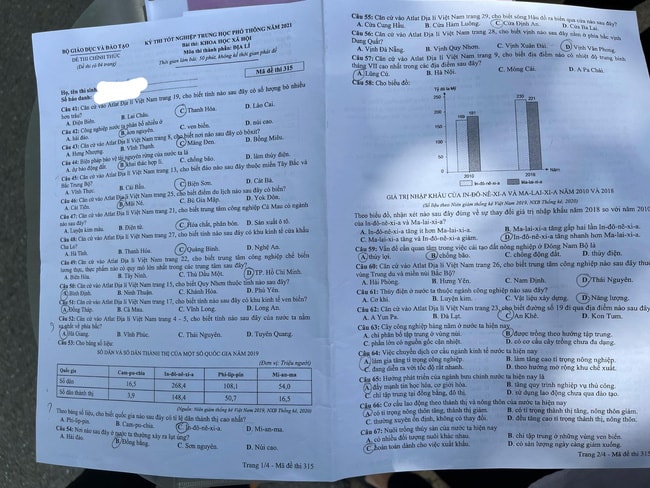 BỘ GIÁO DỤC VÀ ĐÀO TẠO
ĐỀ THI CHÍNH THỨC
(Đề thi có 04 trang)
KỲ THI TỐT NGHIỆP TRUNG HỌC PHỔ THÔNG NĂM 2021
Bài thi: KHOA HỌC XÃ HỘI
Môn thi thành phần: ĐỊA LÍ
Thời gian làm bài: 50 phút, không kể thời gian phát đề
Mã đề thi 315
Họ, tên thí sinh:
Số báo danh:
Câu 41: Căn cứ vào Atlat Địa lí Việt Nam trang 19, cho biết tỉnh nào sau đây có số lượng bò nhiều
hơn trâu?
A. Điện Biên. B. Lai Châu. C. Thanh Hóa. D. Lào Cai.
Câu 42: Công nghiệp nước ta phân bố nhiều ở
A. hải đảo. B. sơn nguyên. C. ven biển. D. núi cao.
Câu 43: Căn cứ vào Atlat Địa lí Việt Nam trang 8, cho biết nơi nào sau đây có bôxit?
A. Hưng Nhượng. B. Vĩnh Thạnh. C. Măng Đen. D. Bồng Miêu.
Câu 44: Biện pháp bảo vệ tài nguyên rừng của nước ta là
A. dự báo động đất. B. khai thác hợp lí. C. chống bão. D. làm thủy điện.
Câu 45: Căn cứ vào Atlat Địa lí Việt Nam trang 13, cho biết đảo nào sau đây thuộc miền Tây Bắc và
Bắc Trung Bộ?
A. Vĩnh Thực. B. Cái Bầu. C. Biện Sơn. D. Cát Bà.
Câu 46: Căn cứ vào Atlat Địa lí Việt Nam trang 25, cho biết điểm du lịch nào sau đây có biển?
A. Cát Tiên. B. Mũi Né. C. Bù Gia Mập. D. Yok Đôn.
Câu 47: Căn cứ vào Atlat Địa lí Việt Nam trang 21, cho biết trung tâm công nghiệp Cà Mau có ngành
nào sau đây?
A. Luyện kim màu. B. Điện tử. C. Hóa chất, phân bón. D. Sản xuất ô tô.
Câu 48: Căn cứ vào Atlat Địa lí Việt Nam trang 27, cho biết tỉnh nào sau đây có khu kinh tế cửa khẩu
Cha Lo?
A. Hà Tĩnh. B. Thanh Hóa. C. Quảng Bình. D. Nghệ An.
Câu 49: Căn cứ vào Atlat Địa lí Việt Nam trang 22, cho biết trung tâm công nghiệp chế biến
lương thực, thực phẩm nào có quy mô lớn nhất trong các trung tâm sau đây?
A. Biên Hòa. B. Tây Ninh. C. Thủ Dầu Một. D. TP. Hồ Chí Minh.
Câu 50: Căn cứ vào Atlat Địa lí Việt Nam trang 15, cho biết Quy Nhơn thuộc tỉnh nào sau đây?
A. Bình Định. B. Ninh Thuận. C. Khánh Hòa. D. Phú Yên.
Câu 51: Căn cứ vào Atlat Địa lí Việt Nam trang 17, cho biết tỉnh nào sau đây có khu kinh tế ven biển?
A. Đồng Tháp. B. Cà Mau. C. Vĩnh Long. D. Long An.
Câu 52: Căn cứ vào Atlat Địa lí Việt Nam trang 4 - 5, cho biết tỉnh nào sau đây của nước ta nằm
A. Hà Giang. B. Vĩnh Phúc. C. Thái Nguyên. D. Tuyên Quang.
Câu 53: Cho bảng số liệu:
SỐ DÂN VÀ SỐ DÂN THÀNH THỊ CỦA MỘT SỐ QUỐC GIA NĂM 2019
(Đơn vị: Triệu người)
Quốc gia Cam-pu-chia In-đô-nê-xi-a Phi-lip-pin Mi-an-ma
Số dân 16,5 268,4 108,1 54,0
Số dân thành thị 3,9 148,4 50,7 16,5
(Nguồn: Niên giám thống kê Việt Nam 2019, NXB Thống kê, 2020)
Theo bảng số liệu, cho biết quốc gia nào sau đây có tỉ lệ dân thành thị cao nhất?
A. Phi-lip-pin. B. Cam-pu-chia. C. In-đô-nê-xi-a. D. Mi-an-ma.
Câu 54: Nơi nào sau đây ở nước ta thường xảy ra lụt úng?
A. Hải đảo. B. Đồng bằng. C. Sơn nguyên. D. Núi cao.
Trang 1/4 - Mã đề thi 315
Câu 55: Căn cứ vào Atlat Địa lí Việt Nam trang 29, cho biết sông Hậu đổ ra biển qua cửa nào sau đây?
A. Cửa Cung Hầu. B. Cửa Hàm Luông. C. Cửa Định An. D. Cửa Ba Lai.
Câu 56: Căn cứ vào Atlat Địa lí Việt Nam trang 28, cho biết vịnh nào sau đây nằm ở phía bắc vịnh
Dung Quất?
A. Vịnh Đà Nẵng. B. Vịnh Quy Nhơn. C. Vịnh Xuân Đài. D. Vịnh Vân Phong.
Câu 57: Căn cứ vào Atlat Địa lí Việt Nam trang 9, cho biết địa điểm nào sau đây có nhiệt độ trung bình
tháng VII cao nhất trong các địa điểm sau đây?
A. Lũng Cú. B. Hà Nội. C. Móng Cái. D. A Pa Chải.
Câu 58: Cho biểu đồ:
Tỷ đô la Mỹ
300
250
200
150
100
50
0
169 189 230 221
2010 2018 Năm
In-đô-nê-xi-a Ma-lai-xi-a
GIÁ TRỊ NHẬP KHẨU CỦA IN-ĐÔ-NÊ-XI-A VÀ MA-LAI-XI-A NĂM 2010 VÀ 2018
(Số liệu theo Niên giám thống kê Việt Nam 2019, NXB Thống kê, 2020)
Theo biểu đồ, nhận xét nào sau đây đúng về sự thay đổi giá trị nhập khẩu năm 2018 so với năm 2010
của In-đô-nê-xi-a và Ma-lai-xi-a?
A. In-đô-nê-xi-a tăng ít hơn Ma-lai-xi-a. B. Ma-lai-xi-a tăng gấp hai lần In-đô-nê-xi-a.
C. Ma-lai-xi-a tăng và In-đô-nê-xi-a giảm. D. In-đô-nê-xi-a tăng nhanh hơn Ma-lai-xi-a.
Câu 59: Vấn đề cần quan tâm trong việc cải tạo đất nông nghiệp ở Đông Nam Bộ là
A. thủy lợi. B. chống bão. C. chống động đất. D. thủy điện.
Câu 60: Căn cứ vào Atlat Địa lí Việt Nam trang 26, cho biết trung tâm công nghiệp nào sau đây thuộc
vùng Trung du và miền núi Bắc Bộ?
A. Hải Phòng. B. Hưng Yên. C. Nam Định. D. Thái Nguyên.
Câu 61: Thủy điện ở nước ta thuộc ngành công nghiệp nào sau đây?
A. Cơ khí. B. Luyện kim. C. Vật liệu xây dựng. D. Năng lượng.
Câu 62: Căn cứ vào Atlat Địa lí Việt Nam trang 23, cho biết đường số 19 đi qua địa điểm nào sau đây?
A. A Yun Pa. B. Đà Lạt. C. An Khê. D. Kon Tum.
Câu 63: Cây công nghiệp hàng năm ở nước ta hiện nay
A. chỉ phân bố tập trung ở vùng núi. B. được trồng theo hướng tập trung.
C. phần lớn có nguồn gốc cận nhiệt. D. có cơ cấu cây trồng chưa đa dạng.
Câu 64: Việc chuyển dịch cơ cấu ngành kinh tế nước ta hiện nay
A. làm gia tăng tỉ trọng công nghiệp. B. làm tăng cao tỉ trọng nông nghiệp.
C. đang diễn ra với tốc độ rất nhanh. D. theo hướng mở rộng khu chế xuất.
Câu 65: Hướng phát triển của ngành bưu chính nước ta hiện nay là
A. đẩy mạnh tin học hóa, cơ giới hóa. B. tăng quy trình nghiệp vụ thủ công.
C. chỉ tập trung tại đồng bằng, đô thị. D. sử dụng lao động chưa qua đào tạo.
Câu 66: Cơ cấu lao động theo thành thị và nông thôn của nước ta hiện nay
A. có tỉ trọng nông thôn tăng, thành thị giảm. B. có tỉ trọng thành thị tăng, nông thôn giảm.
C. thường xuyên ổn định, không có thay đổi. D. đều tăng cao tỉ trọng thành thị, nông thôn.
Câu 67: Nuôi trồng thủy sản của nước ta hiện nay
A. có nhiều đối tượng nuôi khác nhau. B. chỉ tập trung ở những vùng ven biển.
C. hoàn toàn dành cho việc xuất khẩu. D. có sản lượng ngày càng giảm xuống.
Trang 2/4 - Mã đề thi 315